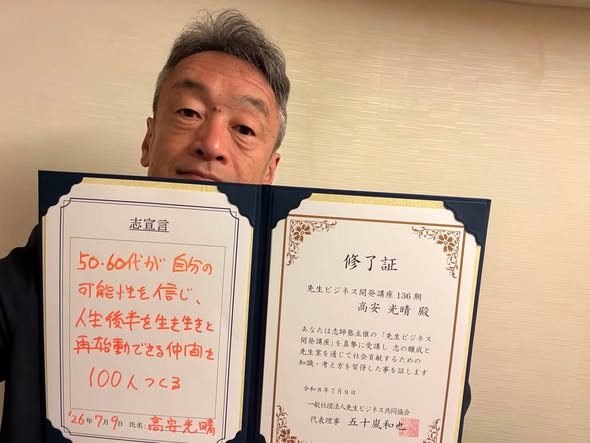 志宣言
50・60代が 自分の
可能性を信じ、
人生後半を生き生きと
再始動できる仲間を
100人つくる
'26年7月9日 氏名:高安光晴
修了証
先生ビジネス開発講座 136期
高安 光晴 殿
あなたは志師塾主催の「先生ビジネス
開発講座」を真摯に受講し 志の醸成と
先生業を通じて社会貢献するための
知識・考え方を習得した事を証します
令和8年7月9日
一般社団法人先生ビジネス共同協会
代表理事 五十嵐和也